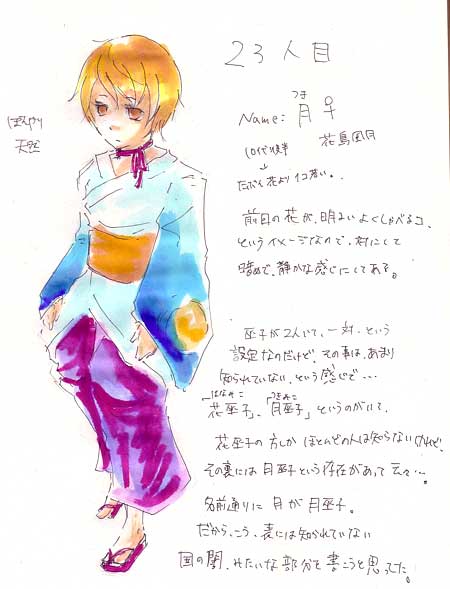 23人目
ぼんやり
天然
Name: 月 ♀
つき
花鳥風月
10代後半
↓
たぶん花より1コ若い。
前回の花が、明るいよくしゃべるコ、
というイメージなので、対にして
暗めで、静かな感じにしてある。
巫子が2人いて、一対、という
設定なのだけど、その事は、あまり
知られていない、という感じで…
はなみこ つきみこ
「花巫子」、「月巫子」というのがいて、
花巫子の方しかほとんどの人は知らないけれど、
その裏には月巫子という存在があって云々…。
名前通りに月が月巫子。
だから、こう、表には知られていない
国の闇、みたいな部分を書こうと思ってた。